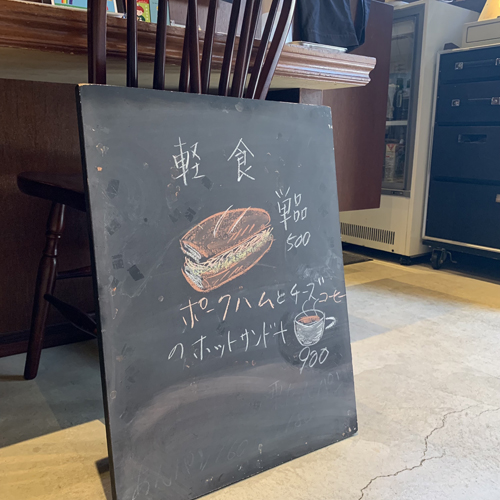 軽食
単品
500
ポークハムとチーズ
のホットサンド+
コーヒー
900